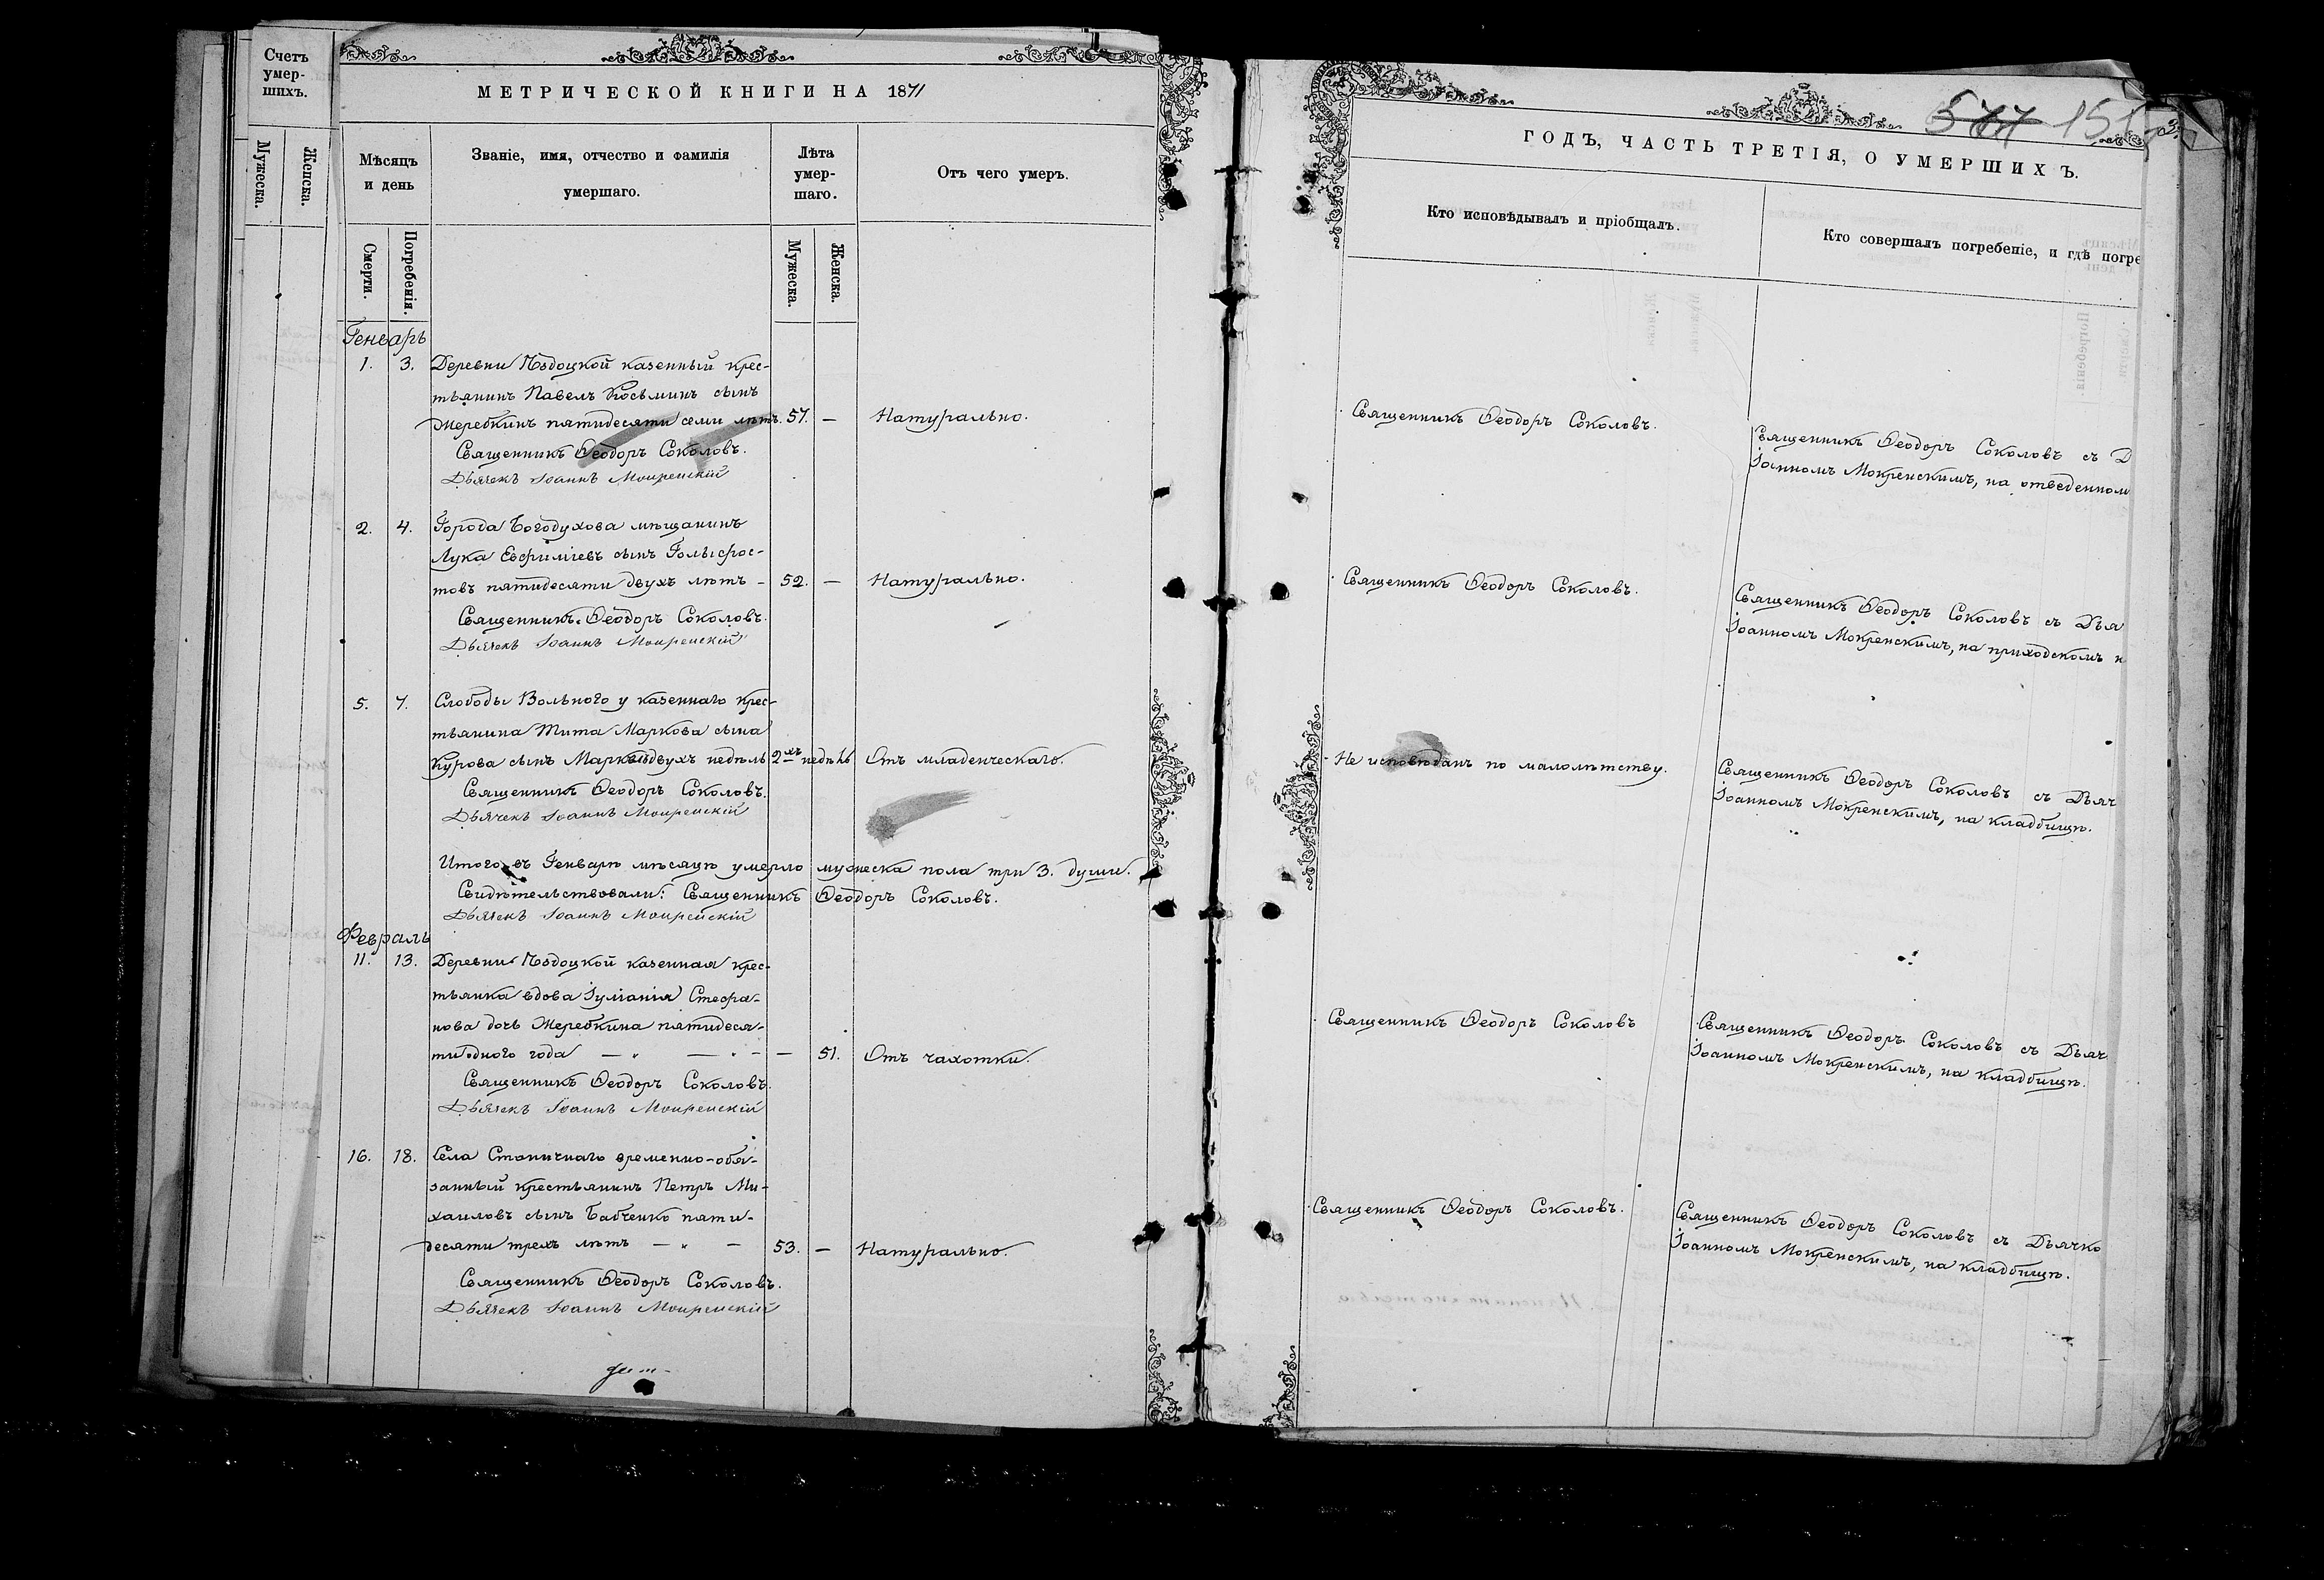 Счетъ
умер-
шихъ.
Мужеска.
Женска.
МЕТРИЧЕСКОЙ КНИГИ НА 1871
Мѣсяцъ
и день
Смерти.
Погребенія.
Званіе, имя, отчество и фамилія
умершаго.
Лѣта
умер-
шаго.
Мужеска.
Женска.
Отъ чего умеръ.
Генварь
1. 3. Деревни казенный крес-
тьянинъ Павелъ Косьминъ сынъ
Жеребкинъ пятидесяти семи лѣтъ. 57. — Натурально.
Священникъ Ѳеодоръ Соколовъ.
Дьячекъ Іоаннъ Мокренскій
2. 4. Города Богодухова мѣщанинъ
Лука Евфиміевъ сынъ Голыфос-
товъ пятидесяти двухъ лѣтъ - 52. — Натурально.
Священникъ Ѳеодоръ Соколовъ.
Дьячекъ Іоаннъ Мокренскій
5. 7. Слободы Вольного у казеннаго крес-
тьянина Тита Маркова сына
Курова сынъ двухъ недѣль 2хъ недѣль Отъ младенческаго.
Священникъ Ѳеодоръ Соколовъ.
Дьячекъ Іоаннъ Мокренскій
Итого въ Генварѣ мѣсяцѣ умерло мужеска пола три 3. души.
Свидѣтельствовали: Священникъ Ѳеодоръ Соколовъ.
Дьячекъ Іоаннъ Мокренскій
Февраль
11. 13. Деревни казенная крес-
тьянка вдова Іуліанія Стефа-
нова дочь Жеребкина пятидеся-
ти одного года — „ — - — 51. Отъ чахотки.
Священникъ Ѳеодоръ Соколовъ.
Дьячекъ Іоаннъ Мокренскій
16. 18. Села Станичнаго временно-обя-
занный крестьянинъ Петръ Ми-
хаиловъ сынъ Бабченко пяти-
десяти трехъ лѣтъ — „ — 53. — Натурально.
Священникъ Ѳеодоръ Соколовъ.
Дьячекъ Іоаннъ Мокренскій
577 151
ГОДЪ, ЧАСТЬ ТРЕТІЯ, О УМЕРШИХЪ.
Кто исповѣдывалъ и пріобщалъ.
Кто совершалъ погребеніе, и гдѣ погре
Священникъ Ѳеодоръ Соколовъ.
Священникъ Ѳеодоръ Соколовъ съ Д
Іоанномъ Мокренскимъ, на отведенном
Священникъ Ѳеодоръ Соколовъ.
Священникъ Ѳеодоръ Соколовъ съ Дья
Іоанномъ Мокренскимъ, на приходскомъ к
Не исповѣданъ по малолѣтству.
Священникъ Ѳеодоръ Соколовъ съ Дьяч
Іоанномъ Мокренскимъ, на кладбищѣ.
Священникъ Ѳеодоръ Соколовъ
Священникъ Ѳеодоръ Соколовъ съ Дьяч
Іоанномъ Мокренскимъ, на кладбищѣ.
Священникъ Ѳеодоръ Соколовъ.
Священникъ Ѳеодоръ Соколовъ съ Дьячко
Іоанномъ Мокренскимъ, на кладбищѣ.